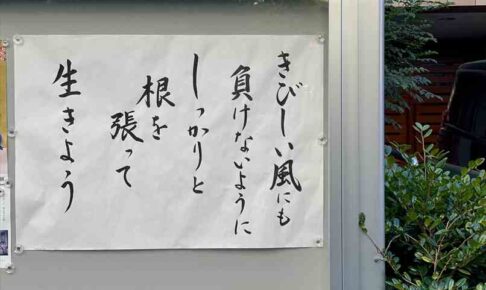 きびしい風にも
負けないように
しっかりと
根を
張って
生きよう